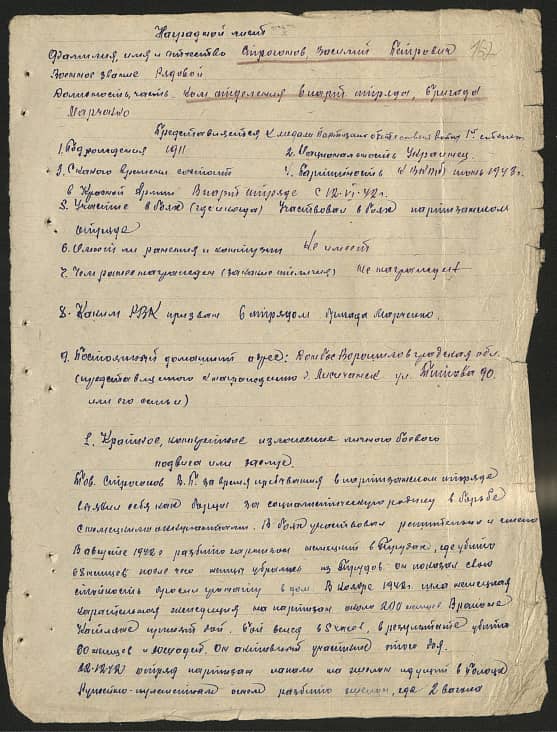 Наградной лист
157
Фамилия, имя и отчество Строгонов, Василий Петрович
Военное звание Рядовой
Должность, часть ком отделения 6 парт отряда, бригада
Марченко
Представляется к медали Партизану отечественной войны 1й степени
1. Год рождения 1911 2. Национальность Украинец
3. С какого времени состоит 4. Партийность к ВКП(б) июнь 1943 г.
в Красной Армии В парт отряде с 12-VI-42 г.
5. Участие в боях (где и когда) Участвовал в боях партизанском
отряде
6. Имеет ли ранения и контузии Не имеет
7. Чем ранее награжден (за какие отличия) Не награжден
8. Каким РВК призван 6 отрядом бригада Марченко.
9. Постоянный домашний адрес: Донбас Ворошиловградская обл.
(представляемого к награждению г. Лисичанск ул. 90.
или его семьи)
1. Краткое, конкретное изложение личного боевого
подвига или заслуг.
Тов. Строгонов В.П. за время пребывания в партизанском отряде
показал себя как борец за социалистическую родину в борьбе
с немецкими оккупантами. В боях участвовал решительно и смело
В августе 1942 г разбито гарнизон немецкий в Прудах, где убито
68 немцев после чего немцы убрались из Прудов. Он показал свою
стойкость бросил гранату в дом. В Ноябре 1942 г. шла немецкая
карательная экспедиция на партизан около 200 немцев В районе
принят бой. Бой велся 5 часов, в результате убито
60 немцев и Он активный участник этого боя.
22-12-42 отряд партизан напали на эшелон идущий в Полоцк
Ружейно-пулеметным огнем разбито эшелон, где 2 вагона